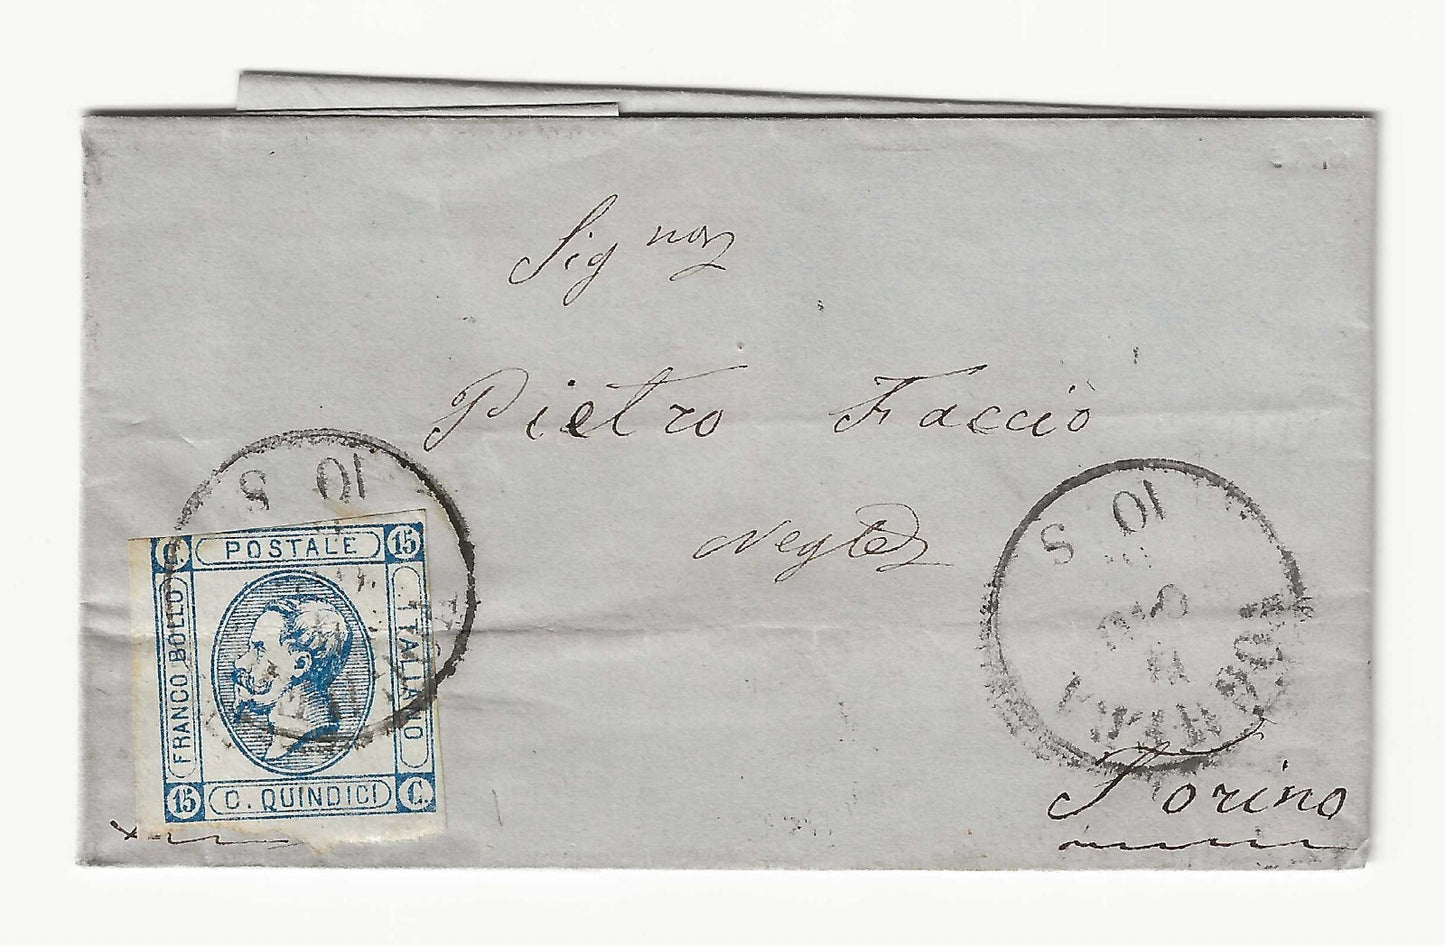 Sig nor
Pietro Facciò
Negte
Torino
10 S
C. POSTALE 15
FRANCO BOLLO
ITALIANO
15 C. QUINDICI C.
10 S